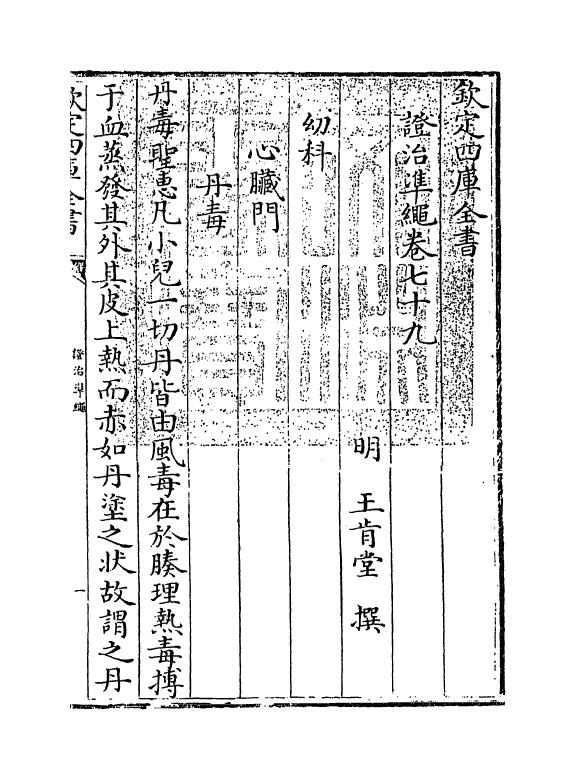 欽定四庫全書
證治準繩卷七十九
明 王肯堂 撰
幼科
心臟門
丹毒
丹毒聖惠凡小兒一切丹皆由風毒在於腠理熱毒搏
于血蒸發其外其皮上熱而赤如丹塗之狀故謂之丹
欽定四庫全書
證治準繩
一